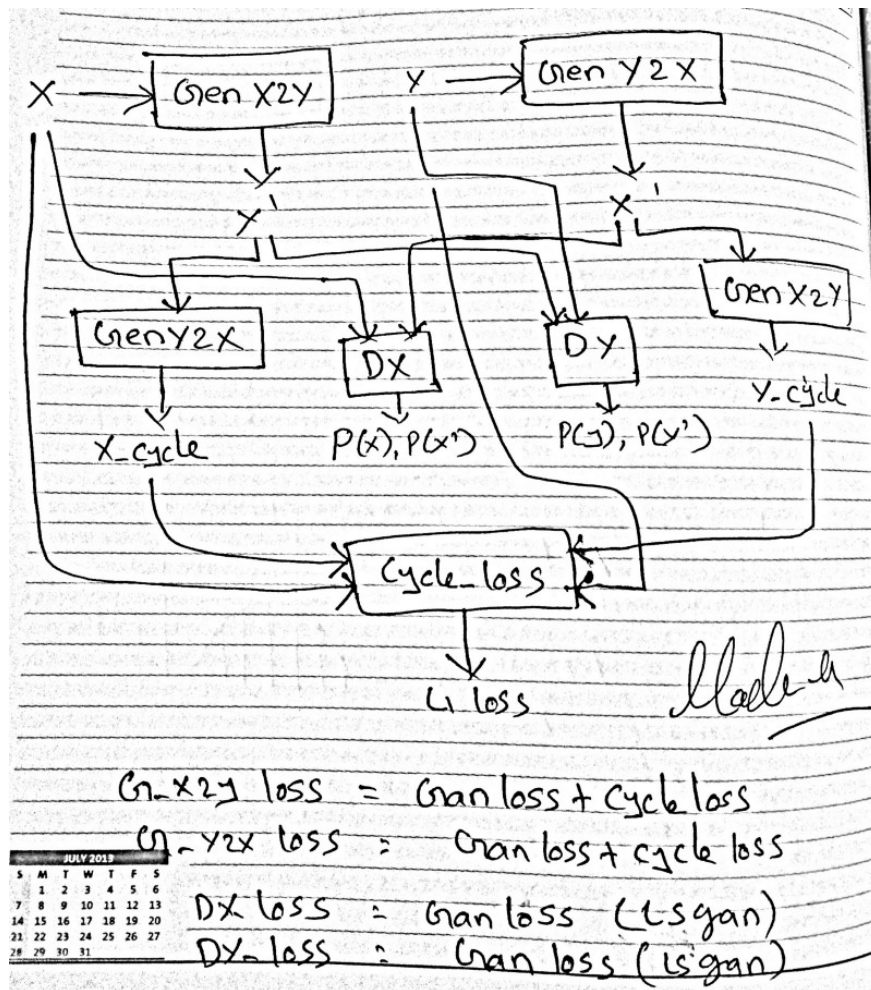 X Gen X2Y Y Gen Y2X
Y' X'
Gen X2Y
Gen Y2X DX DY
Y_cycle
X_cycle P(x), P(x') P(y), P(y')
Cycle-loss
L1 loss
G_X2y loss = Gan loss + Cycle loss
G_Y2X loss = Gan loss + cycle loss
DX loss = Gan loss (Lsgan)
DY_loss = Gan loss (Lsgan)
JULY 2013
S M T W T F S
1 2 3 4 5 6
7 8 9 10 11 12 13
14 15 16 17 18 19 20
21 22 23 24 25 26 27
28 29 30 31